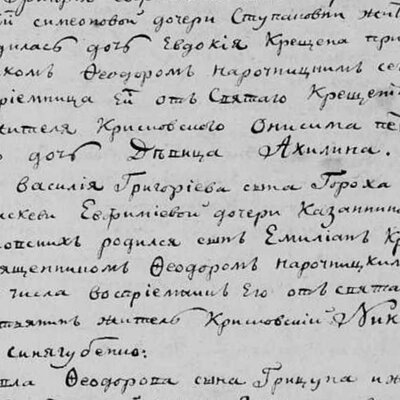 симеоновой дочери Ступановни жит
дилась дочь Евдокія Крещена при
иком Ѳеодоромъ нарочницнимъ се
ріемница Ей отъ Святаго Крещен
жителя Крисповского Онисима
дочь Дѣвица Акилина.
Василія Григоріева сына Гороха
аскеви Евфиміевой дочери Казанни
овскихъ родился сынъ Емиліанъ Кр
вященникомъ Ѳеодоромъ нарочницки
числа воспріемникъ Его отъ свята
житель Крисповскій Ник
синягубенко:
Ѳеодорова сына Грицуна и ж